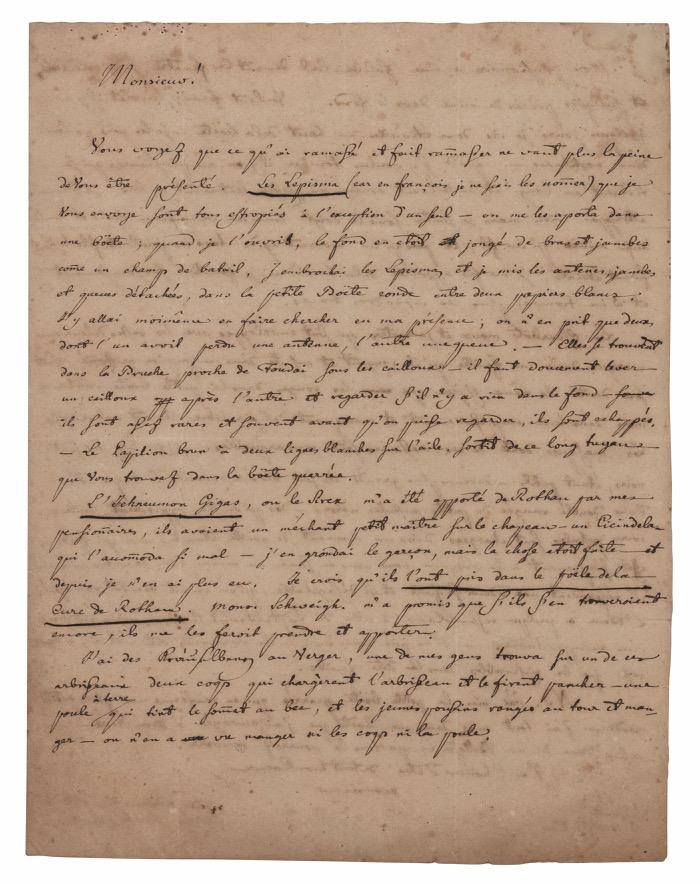 Monsieur!
Vous voyez que ce qu'ai ramassé et fait ramasser ne vaut plus la peine
de Vous être présenté. Les Lepisma (car en françois je ne sais les nomer) que je
Vous envoye sont tous estropiés à l'exception d'un seul — on me les aporta dans
une böete ; quand je l'ouvris, le fond en etoit jongé de bras et jambes
come un champ de batail, J'embrochai les Lepisma, et je mis les antènes, jambes
et queues détachées, dans la petite Böete ronde entre deux papiers blancs ;
J'y allai moimême en faire chercher en ma présence ; on n'en prit que deux,
dont l'un avoit perdu une antène, l'autre une queue. — Elles se trouvent
dans la Bruche proche de Foudai sous les cailloux — il faut doucement lever
un cailloux après l'autre et regarder s'il n'y a rien dans le fond
ils sont assez rares et souvent avant qu'on puisse regarder, ils sont echappés.
— Le Papilion brun à deux lignes blanches sur l'aile, sortit de ce long tuyau
que Vous trouvez dans la böete quarrée.
L'Ichneumon Gigas, ou le Sirex m'a été apporté de Rothau par mes
pensionaires, ils avoient un méchant petit maître sur le chapeau — un Cicindela
qui l'accomoda si mal — j'en grondai le garçon, mais la chose etoit faite — et
depuis je n'en ai plus eu. Je crois qu'ils l'ont pris dans le poële de la
Cure de Rothau. Monsr Schweigh. m'a promis que s'ils s'en trouveroient
encore, ils me les feroit prendre et apporter.
J'ai des au Verger, une de mes gens trouva sur un de ces
arbrisseaux deux coqs qui chargèrent l'arbrisseau et le firent pancher — une
à terre
poule qui tint le somet au bec, et les jeunes poussins rangés au tour et man-
ger — on n'en a vu manger ni les coqs ni la poule.